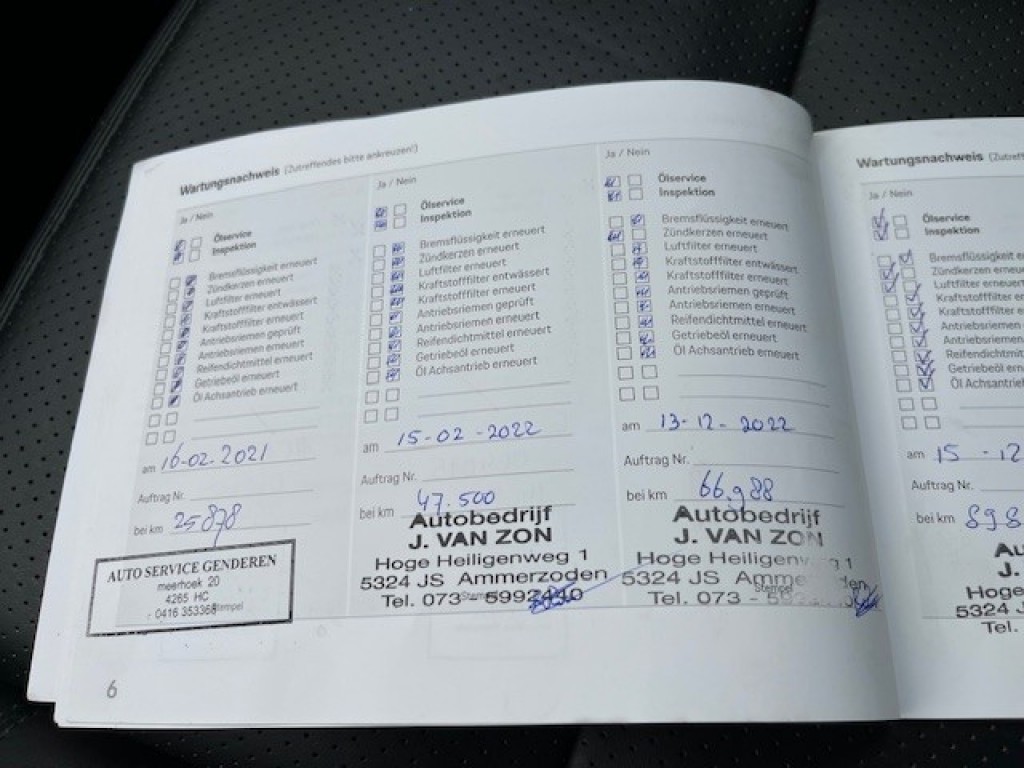 Wartungsnachweis (Zutreffendes bitte ankreuzen!)
Ja / Nein
Ölservice
Inspektion
Bremsflüssigkeit erneuert
Zündkerzen erneuert
Luftfilter erneuert
Kraftstofffilter entwässert
Kraftstofffilter erneuert
Antriebsriemen geprüft
Antriebsriemen erneuert
Reifendichtmittel erneuert
Getriebeöl erneuert
Öl Achsantrieb erneuert
am 16-02-2021
Auftrag Nr.
bei km 25878
AUTO SERVICE GENDEREN
meerhoek 20
4265 HC
0416 353368
Stempel
Ja / Nein
Ölservice
Inspektion
Bremsflüssigkeit erneuert
Zündkerzen erneuert
Luftfilter erneuert
Kraftstofffilter entwässert
Kraftstofffilter erneuert
Antriebsriemen geprüft
Antriebsriemen erneuert
Reifendichtmittel erneuert
Getriebeöl erneuert
Öl Achsantrieb erneuert
am 15-02-2022
Auftrag Nr.
bei km 47.500
Autobedrijf
J. VAN ZON
Hoge Heiligenweg 1
5324 JS Ammerzoden
Tel. 073 - 5992410
Stempel
Ja / Nein
Ölservice
Inspektion
Bremsflüssigkeit erneuert
Zündkerzen erneuert
Luftfilter erneuert
Kraftstofffilter entwässert
Kraftstofffilter erneuert
Antriebsriemen geprüft
Antriebsriemen erneuert
Reifendichtmittel erneuert
Getriebeöl erneuert
Öl Achsantrieb erneuert
am 13-12-2022
Auftrag Nr.
bei km 66.988
Autobedrijf
J. VAN ZON
Hoge Heiligenw 1
5324 JS Amme den
Tel. 073 -
Stempel
6
Wartungsnachweis
Ja / Nein
Ölservice
Inspektion
Bremsflüssigkeit
Zündkerzen erneuert
Luftfilter erneuert
Kraftstofffilter
Kraftstofffilter
Antriebsriemen
Antriebsriemen
Reifendichtmittel
Getriebeöl
Öl Achsantrieb
am 15 - 12
Auftrag Nr.
bei km 898
J.
5324
Tel.